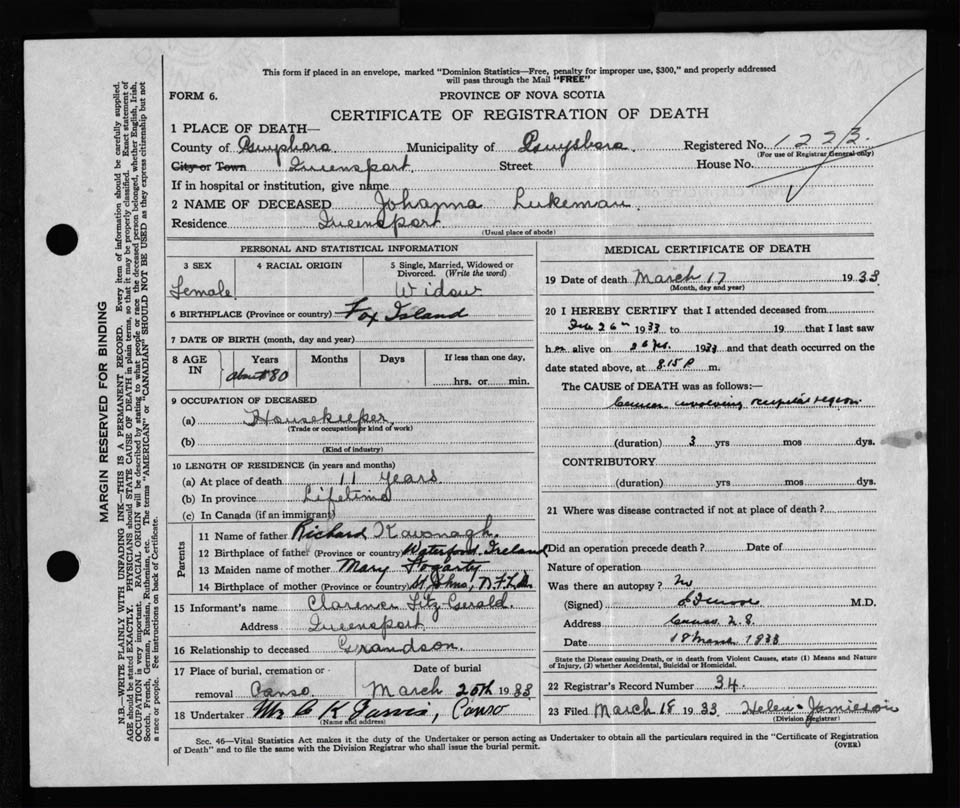 This form if placed in an envelope, marked "Dominion Statistics—Free, penalty for improper use, $300," and properly addressed
will pass through the Mail "FREE"
FORM 6. PROVINCE OF NOVA SCOTIA
CERTIFICATE OF REGISTRATION OF DEATH
1 PLACE OF DEATH—
County of Guysboro Municipality of Guysboro Registered No. 1223
(For use of Registrar General only)
City or Town Queensport Street House No.
If in hospital or institution, give name
2 NAME OF DECEASED Johanna Lukeman
Residence Queensport
(Usual place of abode)
PERSONAL AND STATISTICAL INFORMATION
3 SEX 4 RACIAL ORIGIN 5 Single, Married, Widowed or
Divorced. (Write the word)
Female Widow
6 BIRTHPLACE (Province or country) Fox Island
7 DATE OF BIRTH (month, day and year)
8 AGE IN Years Months Days If less than one day,
about 80 hrs. or min.
9 OCCUPATION OF DECEASED
(a) Housekeeper
(Trade or occupation or kind of work)
(b)
(Kind of industry)
10 LENGTH OF RESIDENCE (in years and months)
(a) At place of death 11 years
(b) In province Lifetime
(c) In Canada (if an immigrant)
Parents
11 Name of father Richard Kavanagh
12 Birthplace of father (Province or country) Waterford, Ireland
13 Maiden name of mother Mary Fogarty
14 Birthplace of mother (Province or country) St Johns, NFLD.
15 Informant's name Clarence Fitz-Gerald
Address Queensport
16 Relationship to deceased Grandson
17 Place of burial, cremation or Date of burial
removal Canso March 20th 1933
18 Undertaker Mr C K Jarvis, Canso
(Name and address)
MEDICAL CERTIFICATE OF DEATH
19 Date of death March 17 1933
(Month, day and year)
20 I HEREBY CERTIFY that I attended deceased from
26th 1933 to 19 that I last saw
her alive on 26 1933 and that death occurred on the
date stated above, at 8.15 P m.
The CAUSE of DEATH was as follows:—
Cancer involving occipital region
(duration) 3 yrs mos dys.
CONTRIBUTORY
(duration) yrs mos dys.
21 Where was disease contracted if not at place of death?
Did an operation precede death? Date of
Nature of operation
Was there an autopsy? No
(Signed) M.D.
Address Canso N.S.
Date 18 March 1933
State the Disease causing Death, or in death from Violent Causes, state (1) Means and Nature
of Injury, (2) whether Accidental, Suicidal or Homicidal.
22 Registrar's Record Number 34
23 Filed March 18 1933 Helen Jamieson
(Division Registrar)
Sec. 46—Vital Statistics Act makes it the duty of the Undertaker or person acting as Undertaker to obtain all the particulars required in the "Certificate of Registration
of Death" and to file the same with the Division Registrar who shall issue the burial permit. (OVER)
MARGIN RESERVED FOR BINDING
N.B.—WRITE PLAINLY WITH UNFADING INK—THIS IS A PERMANENT RECORD. Every item of information should be carefully supplied.
AGE should be stated EXACTLY. PHYSICIANS should STATE CAUSE OF DEATH in plain terms, so that it may be properly classified. Exact statement of
OCCUPATION is very important. RACIAL ORIGIN will be described by stating to what people or race the deceased person belonged, whether English, Irish,
Scotch, French, German, Russian, Ruthenian, etc. The terms "AMERICAN" or "CANADIAN" SHOULD NOT BE USED as they express citizenship but not
a race or people. See instructions on back of Certificate.